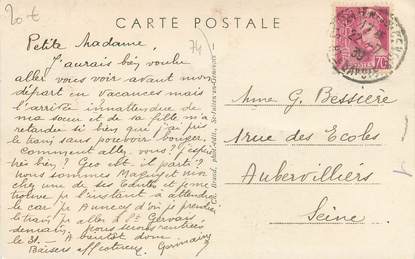 20€
CARTE POSTALE
74
Petite Madame,
J'aurais bien voulu
aller vous voir avant mon
départ en vacances mais
l'arrivée inattendue de
ma sœur et de sa fille m'a
retardée si bien que j'ai pris
le train sans pouvoir bouger.
Comment allez vous ? j'espère
très bien ? Geo est il parti ?
Nous sommes Maguy et moi
chez une de ses tantes et je me
trouve pr l'instant à attendre
le car pr Annecy d'où je prendrai
le train pr aller à St Gervais
demain. Nous serons rentrées
le 31 - A bientôt donc.
Baisers affectueux. Germaine
Mme G. Bessière
1 rue des Ecoles
Aubervilliers
Seine